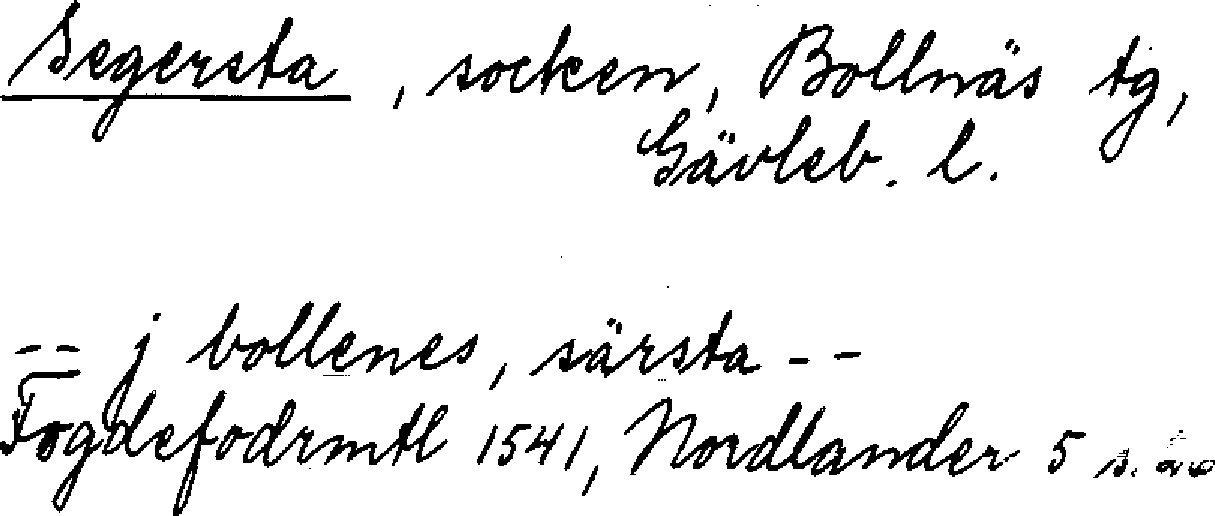 Segersta, socken, Bollnäs tg,
Gävleb. l.
-- j bollenes, särsta --
Fogdefodrmtl 1541, Nordlander 5 s.